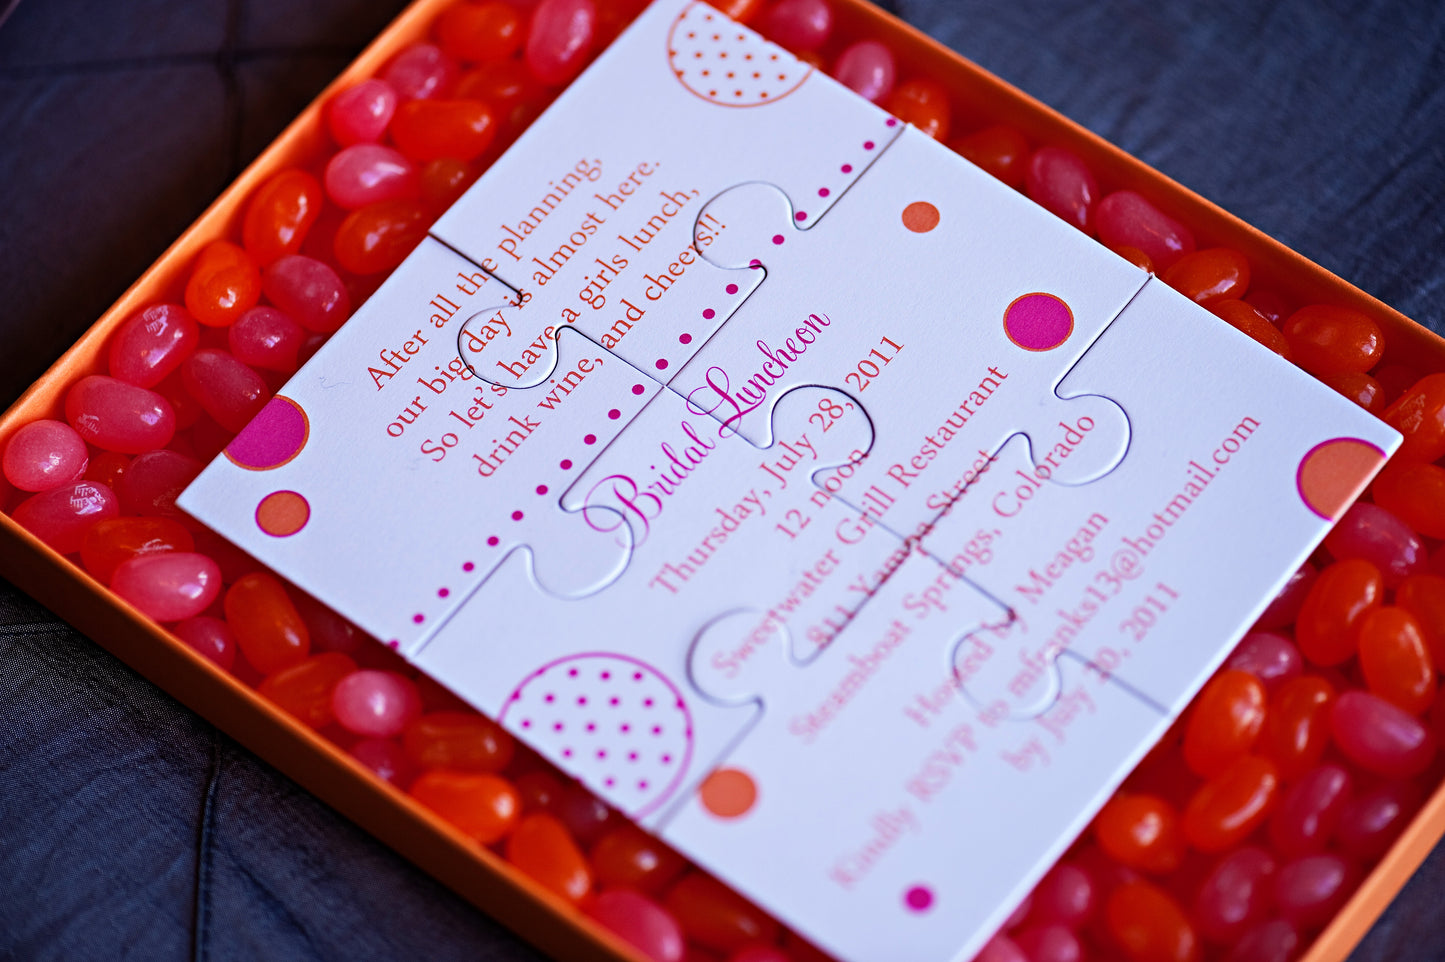 After all the planning,
our big day is almost here.
So let's have a girls lunch,
drink wine, and cheers!!
Bridal Luncheon
Thursday, July 28, 2011
12 noon
Sweetwater Grill Restaurant
811 Yampa Street
Steamboat Springs, Colorado
Hosted by Meagan
Kindly RSVP to mfranks13@hotmail.com
by July 20, 2011
Jelly
Belly